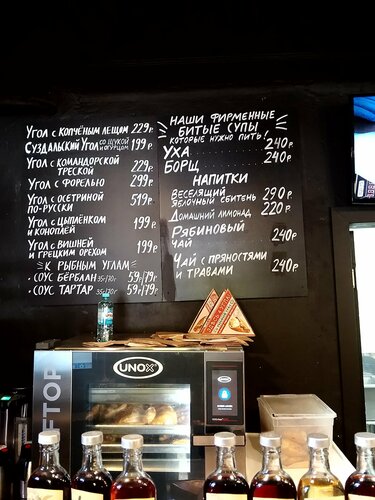 Угол с копчёным лещом 229 р.
Суздальский Угол со щукой и огурцом 199 р.
Угол с командорской
треской 229 р.
Угол с форелью 299 р.
Угол с осетриной
по-русски 519 р.
Угол с цыплёнком
и коноплёй 199 р.
Угол с вишней
и грецким орехом 199 р.
К рыбным углам
• соус Бёрблан 35/70г 59/79 р.
• соус Тартар 35/70г 59/79 р.
Наши фирменные
битые супы,
которые нужно пить!
Уха 240 р.
Борщ 240 р.
Напитки
Веселящий
яблочный сбитень 290 р.
Домашний лимонад 220 р.
Рябиновый
чай 240 р.
Чай с пряностями
и травами 240 р.
UNOX
UNOX
FTOP